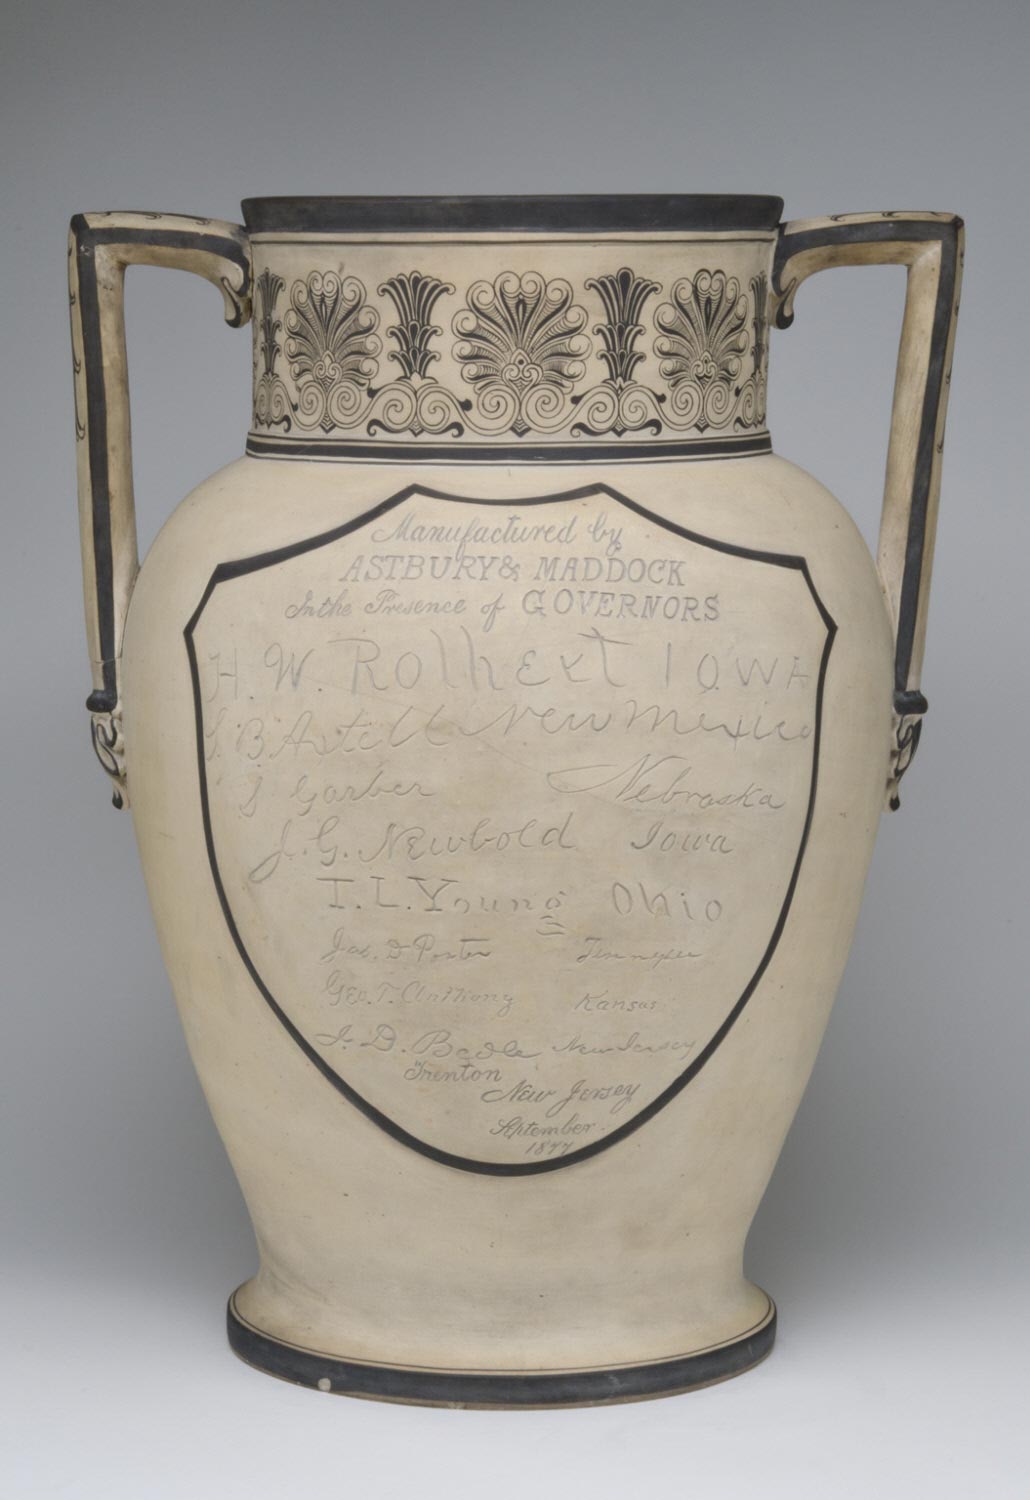 Manufactured by
ASTBURY & MADDOCK
In the Presence of GOVERNORS
H. W. Rothert IOWA
S. B. Axtell New Mexico
S Garber Nebraska
J. G. Newbold Iowa
T. L. Young Ohio
Jas. D. Porter Tennessee
Geo. T. Anthony Kansas
J. D. Bedle New Jersey
Trenton
New Jersey
September.
1877